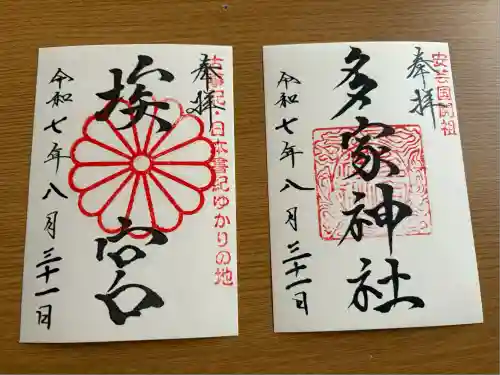 古事記・日本書記ゆかりの地
奉拝
埃宮
令和七年八月三十一日
安芸国開祖
奉拝
多家神社
令和七年八月三十一日